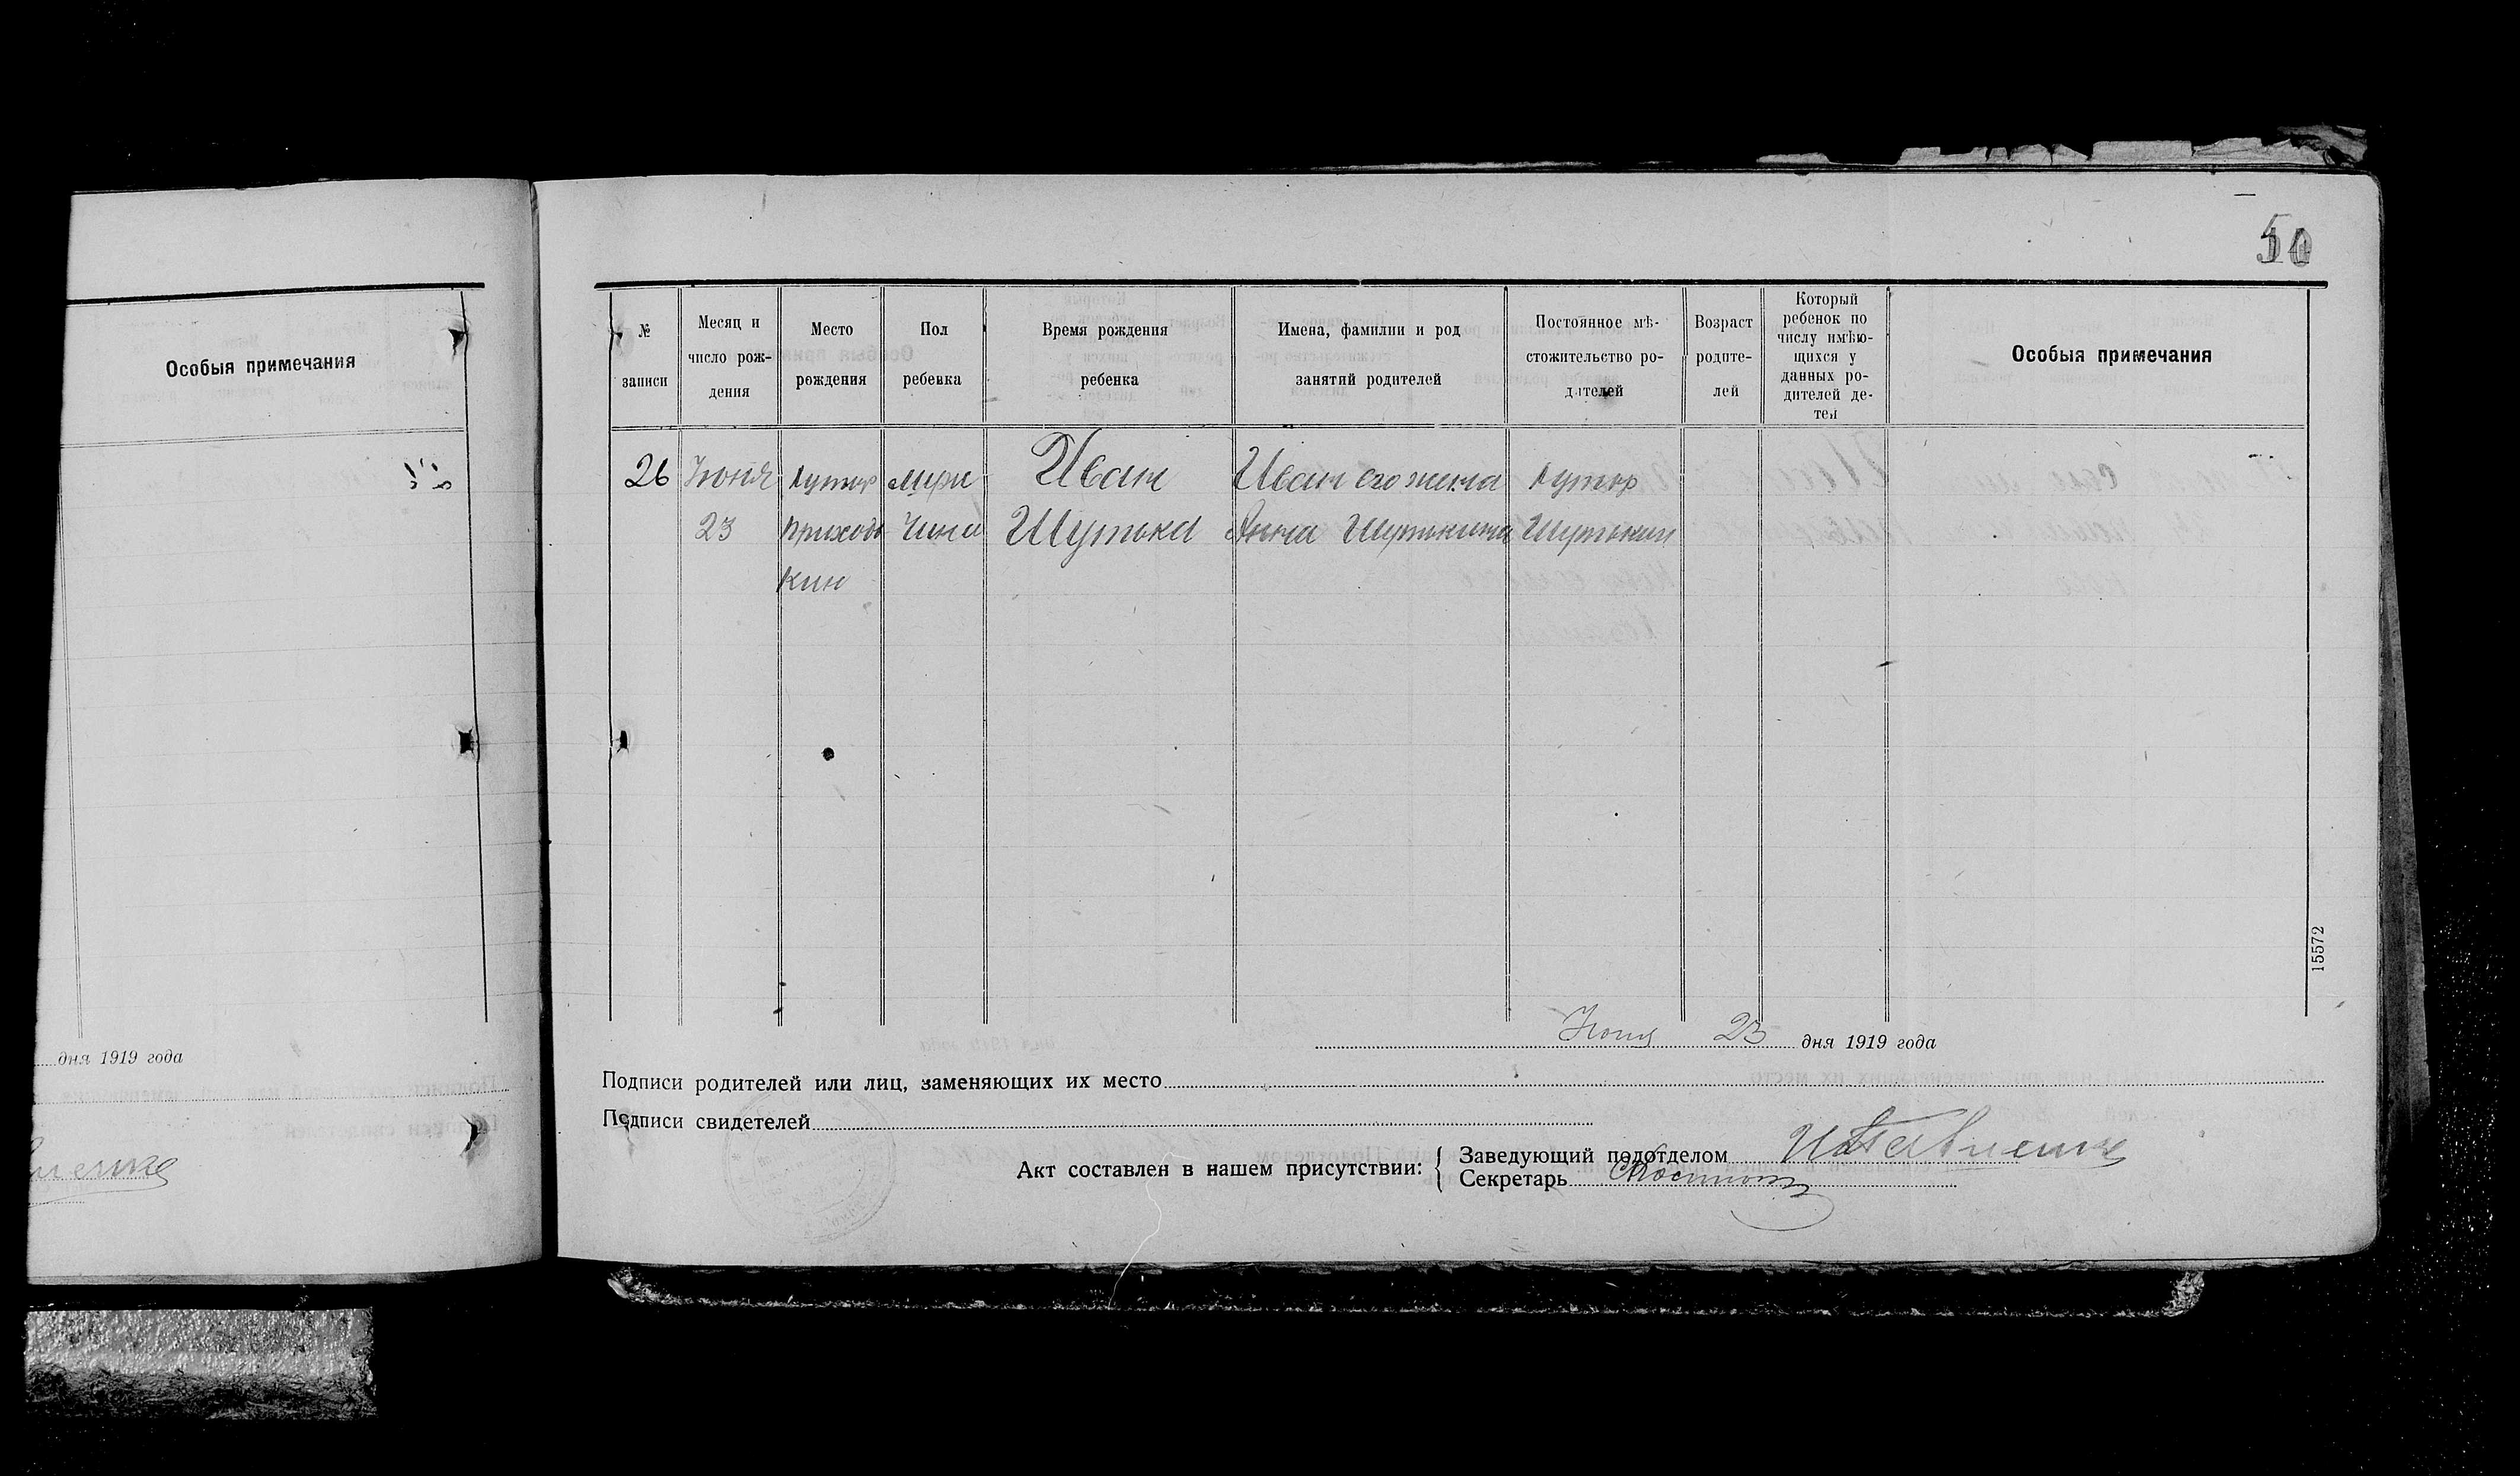 Особыя примечания
дня 1919 года
50
№ записи
Месяц и число рож-дения
Место рождения
Пол ребенка
Время рождения ребенка
Имена, фамилии и род занятий родителей
Постоянное мѣ-стожительство ро-дителей
Возраст родите-лей
Который ребенок по числу имѣю-щихся у данных ро-дителей де-тей
Особыя примечания
26 Июня Хутор мущи Иван Иван его жена Хутор
23 Приходь чина Шутька Анна Шутькина Шутькин
кин
15572
Июня 23 дня 1919 года
Подписи родителей или лиц, заменяющих их место
Подписи свидетелей
Акт составлен в нашем присутствии:
Заведующий подотделом
Секретарь